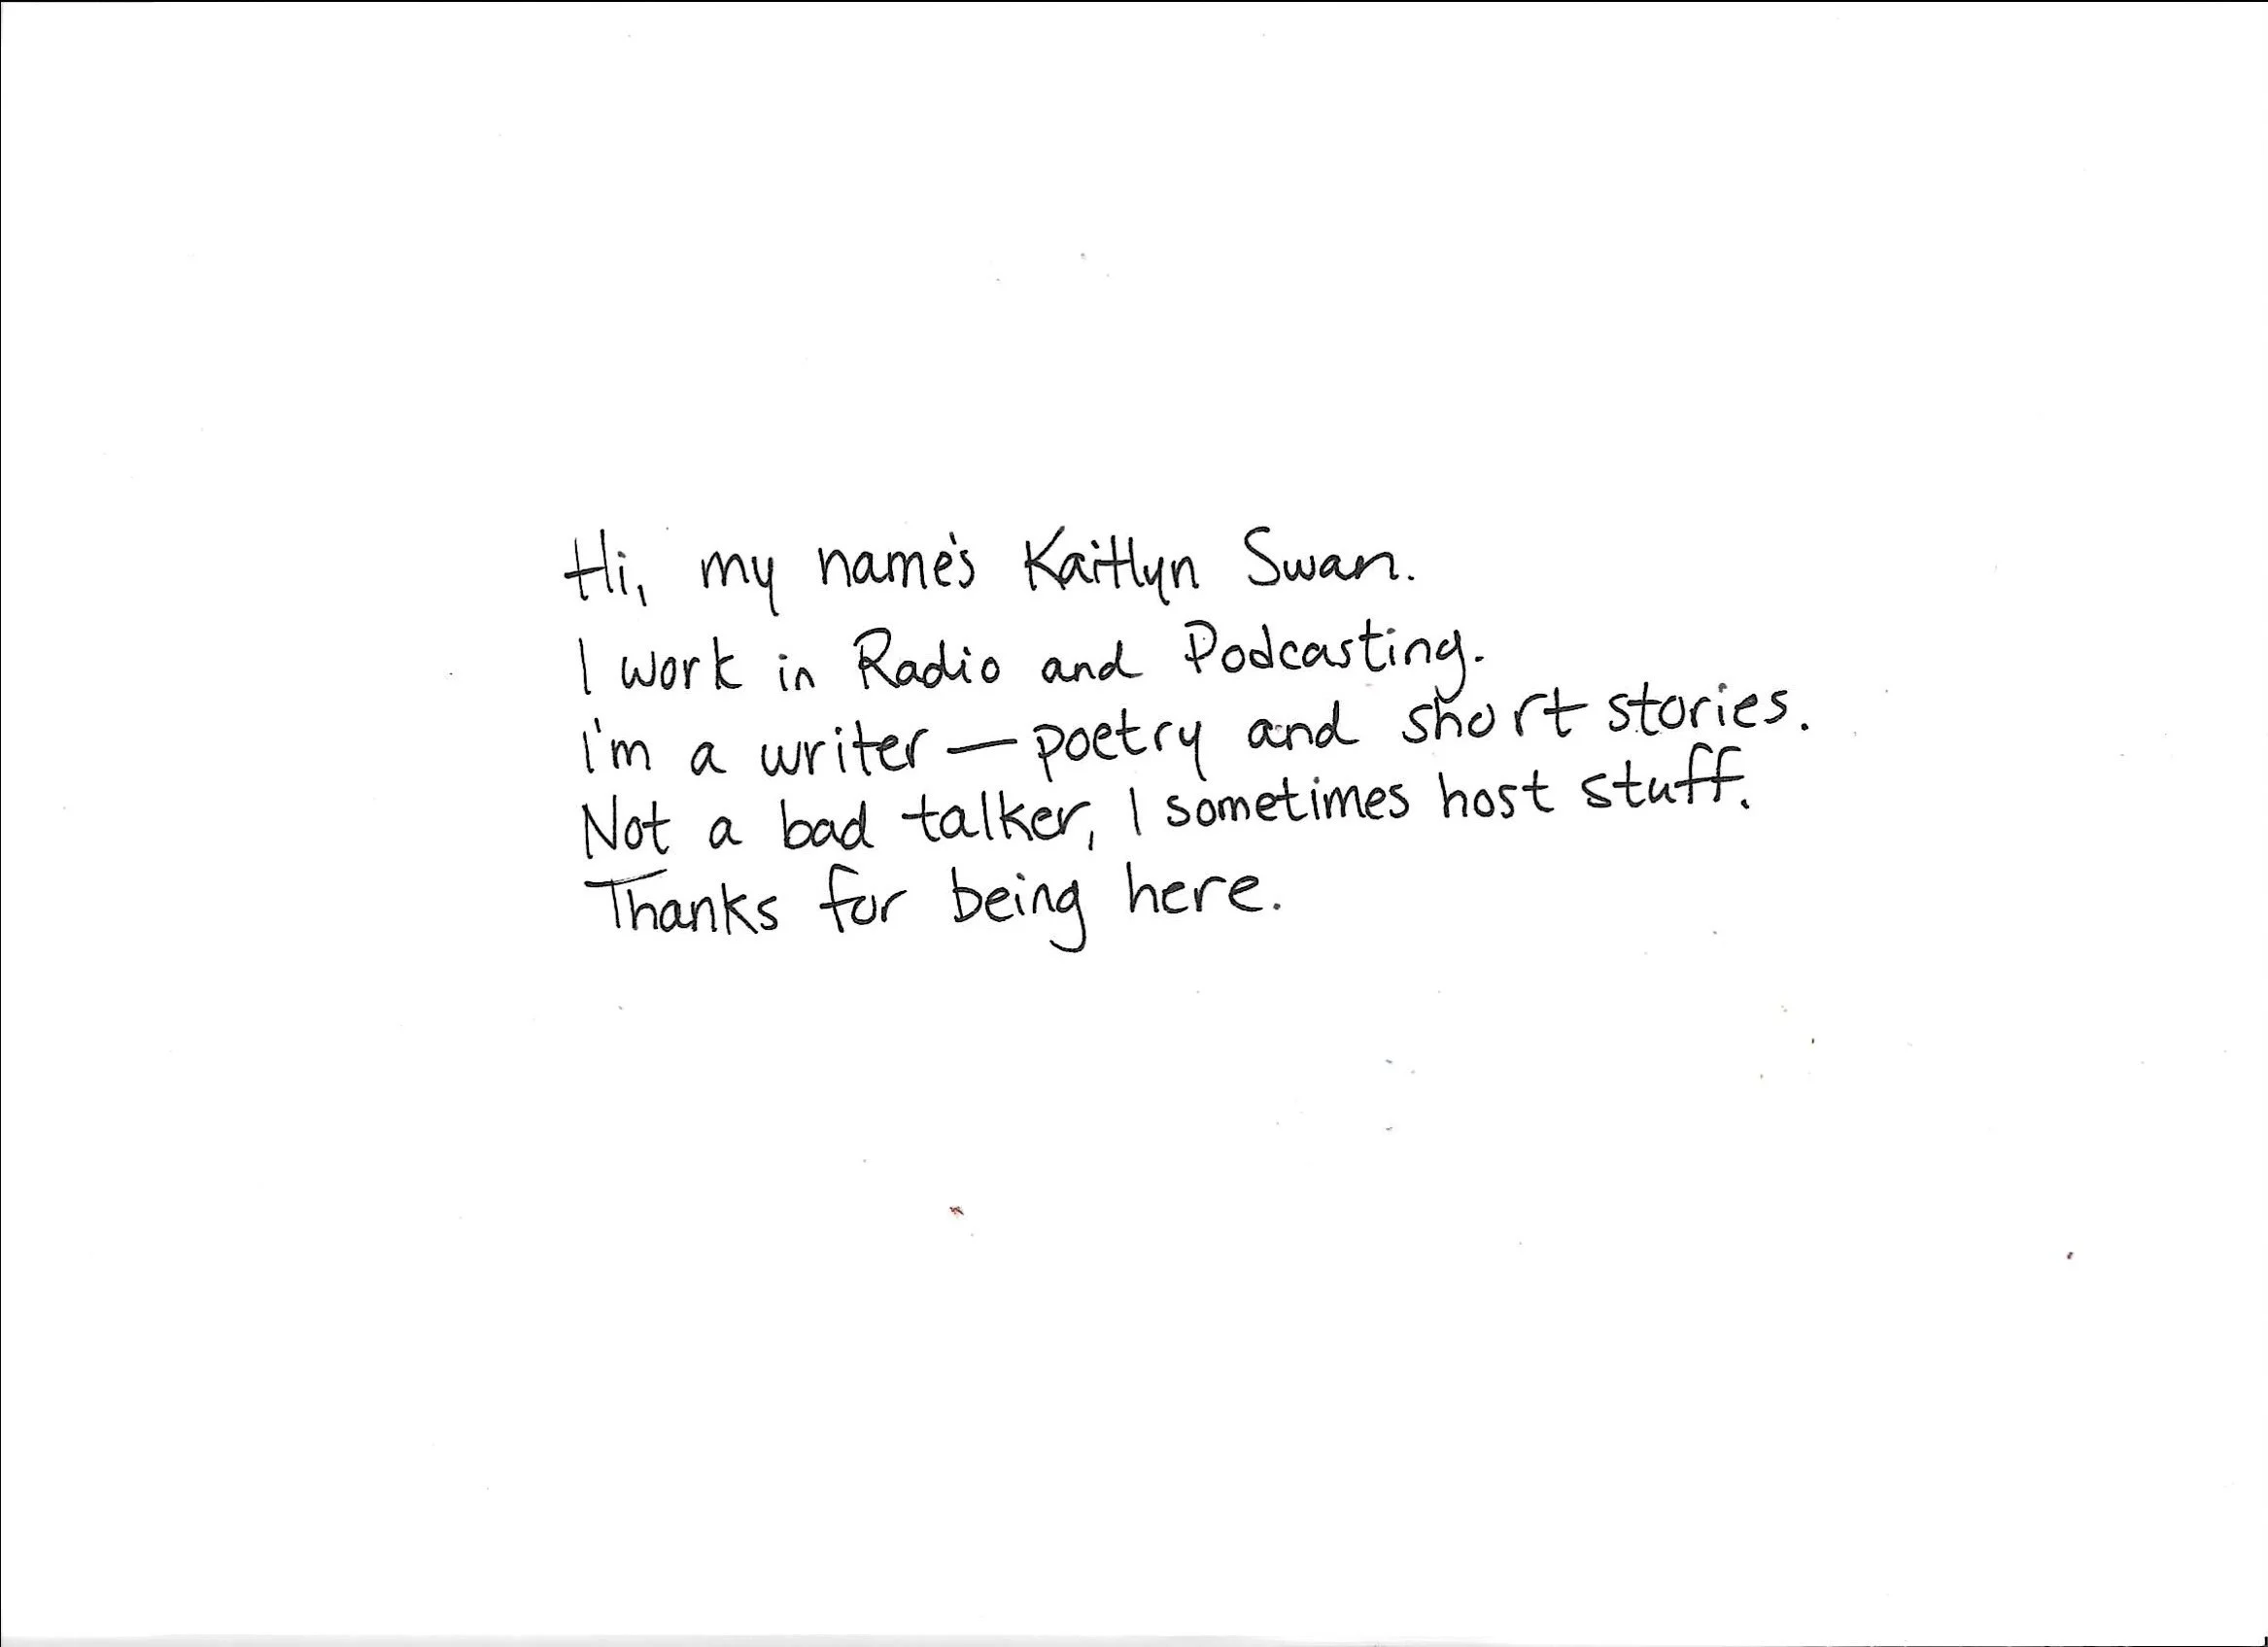 Hi, my name's Kaitlyn Swan.
I work in Radio and Podcasting.
I'm a writer — poetry and short stories.
Not a bad talker, I sometimes host stuff.
Thanks for being here.